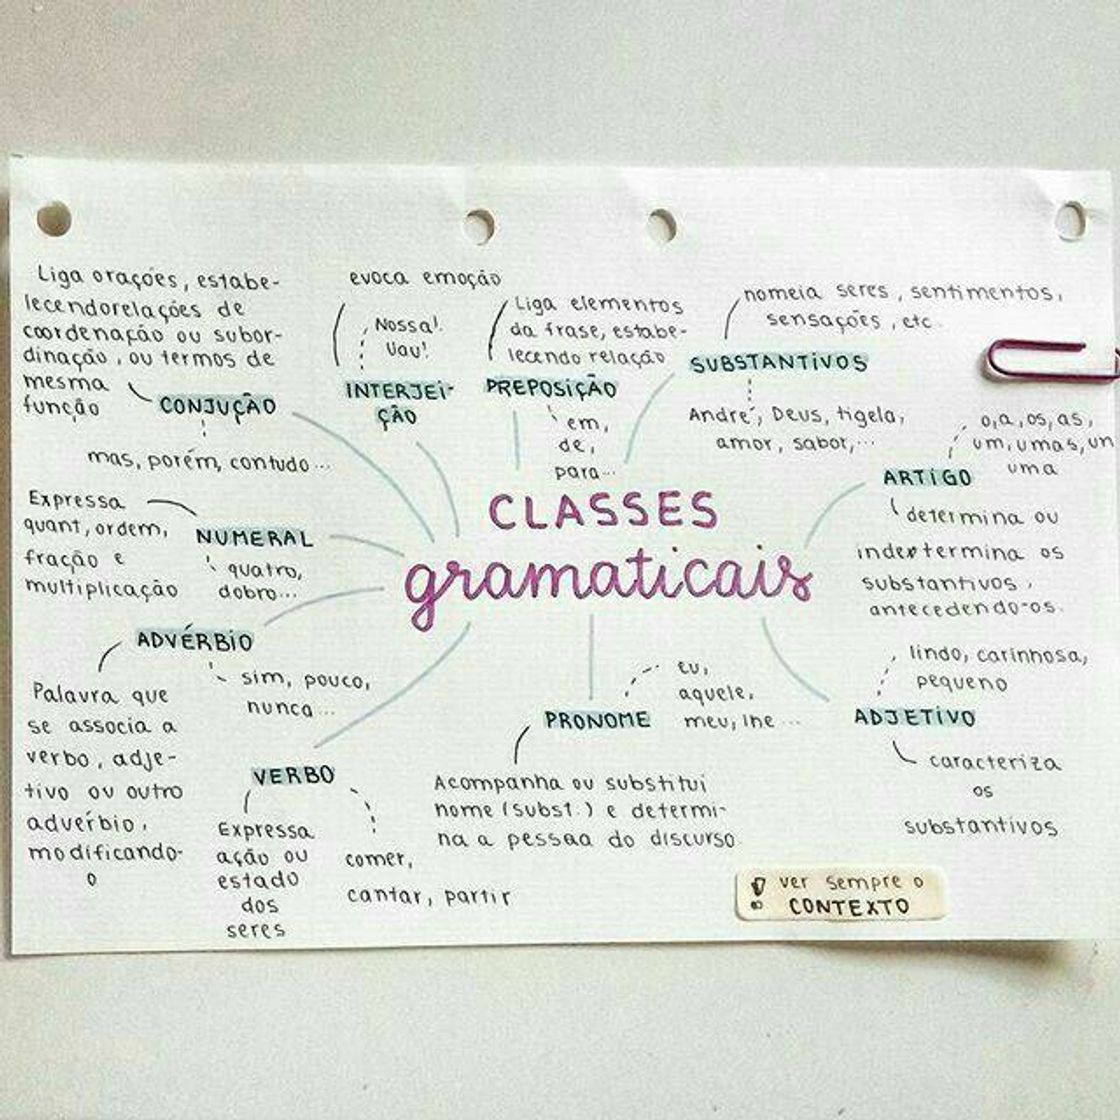 Liga orações, estabe-
lecendorelações de
coordenação ou subor-
dinação, ou termos de
mesma
função
CONJUÇÃO
mas, porém, contudo...
evoca emoção
Nossa!
Uau!
INTERJEI-
ÇÃO
Liga elementos
da frase, estabe-
lecendo relação
PREPOSIÇÃO
em,
de,
para...
nomeia seres, sentimentos,
sensações, etc.
SUBSTANTIVOS
André, Deus, tigela,
amor, sabor,...
o, a, os, as,
um, umas, un
uma
ARTIGO
determina ou
indertermina os
substantivos,
antecedendo-os.
CLASSES
gramaticais
Expressa
quant, ordem,
fração e
multiplicação
NUMERAL
quatro,
dobro...
ADVÉRBIO
sim, pouco,
nunca...
Palavra que
se associa a
verbo, adje-
tivo ou outro
advérbio,
modificando-
o
VERBO
Expressa
ação ou
estado
dos
seres
comer,
cantar, partir
eu,
aquele,
meu, lhe...
PRONOME
Acompanha ou substitui
nome (subst.) e determi-
na a pessoa do discurso
lindo, carinhosa,
pequeno
ADJETIVO
caracteriza
os
substantivos
! ver sempre o
CONTEXTO